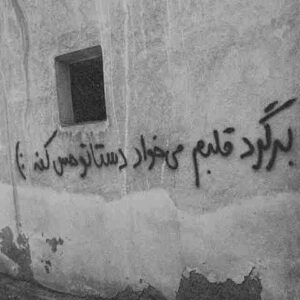 برگرد قلبم می‌خواد دستاتو حس کنه :)